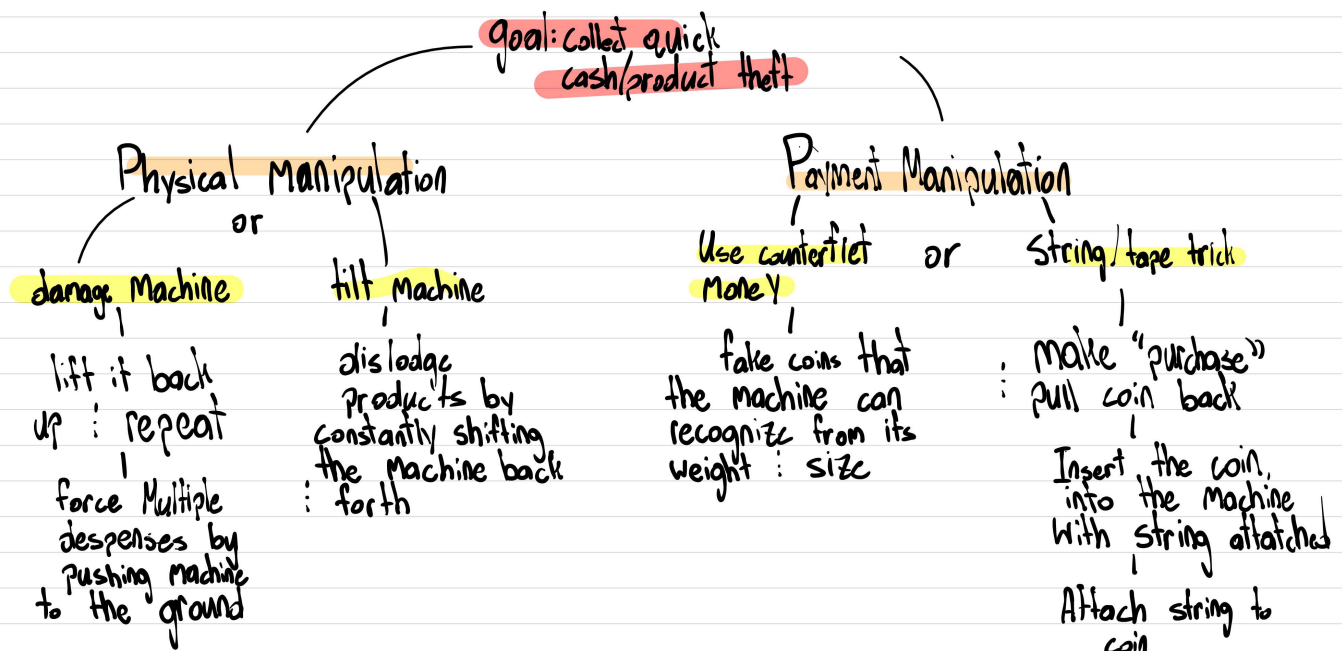 goal: collect quick
cash/product theft
Physical Manipulation
or
damage Machine
lift it back
up : repeat
force Multiple
despenses by
pushing Machine
to the ground
tilt Machine
dislodge
products by
constantly shifting
the Machine back
: forth
Payment Manipulation
Use counterfiet
Money
or
String/tape trick
fake coins that
the Machine can
recognize from its
weight : size
Make "purchase"
: pull coin back
Insert the coin
into the Machine
With string attatched
Attach string to
coin